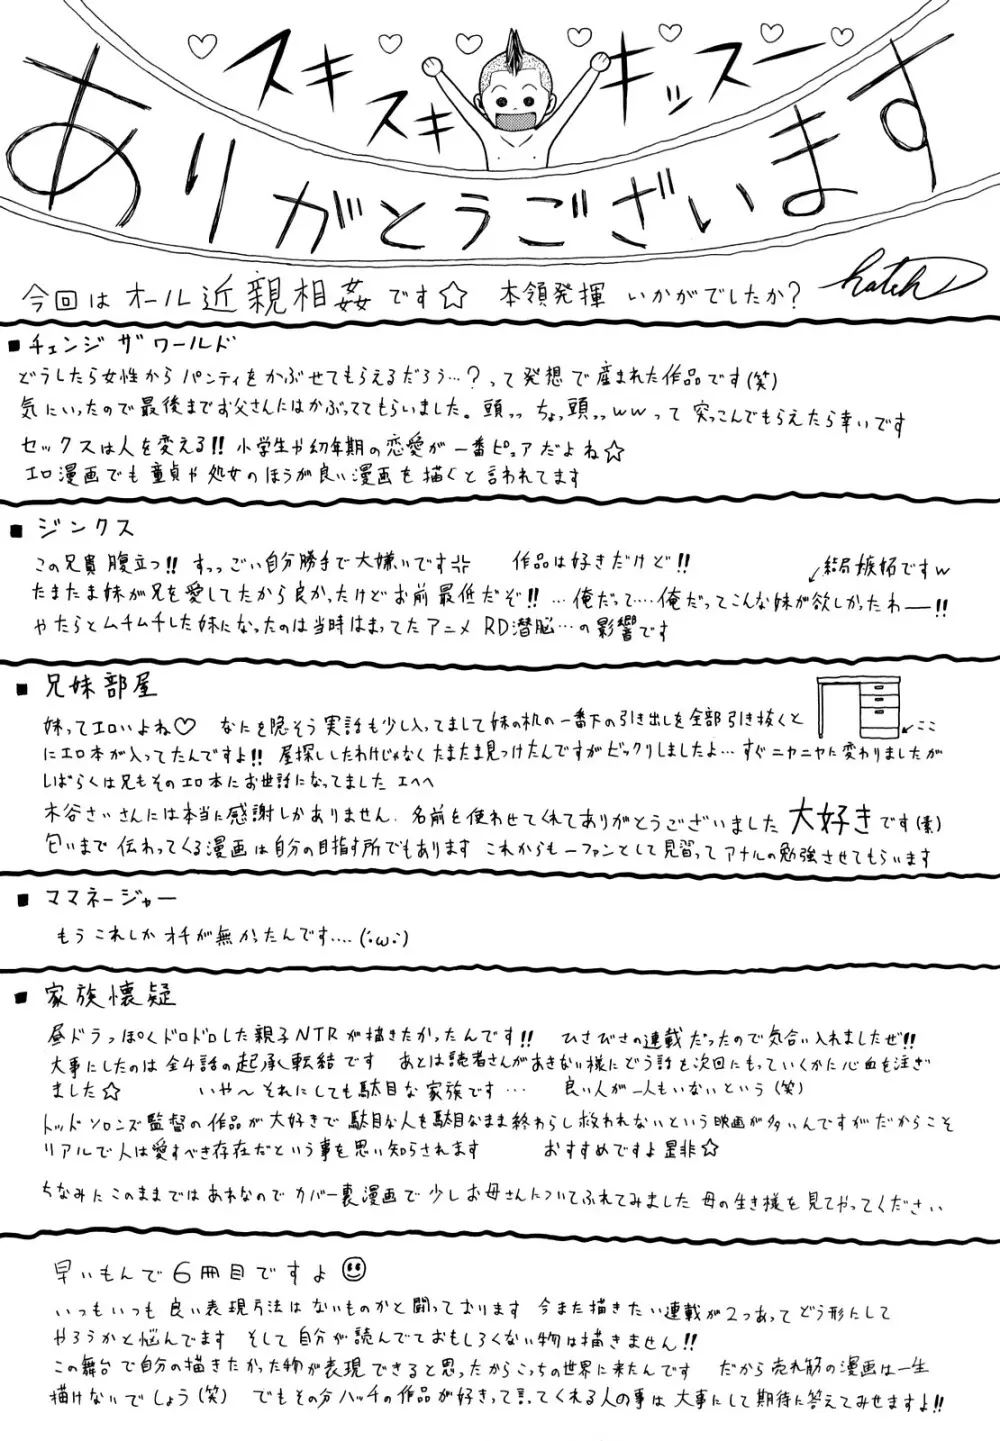 スキスキキッズー
ありがとうございます
今回は オール近親相姦です☆ 本領発揮 いかがでしたか?
hatch
■チェンジ ザ ワールド
どうしたら女性から パンティをかぶせてもらえるだろう…?って発想で産まれた作品です(笑)
気にいったので最後までお父さんにはかぶっててもらいました。頭ッッ ちょっ頭ッッwwって 突っこんでもらえたら幸いです
セックスは人を変える!! 小学生や幼年期の恋愛が一番ピュアだよね☆
エロ漫画でも童貞や処女のほうが良い漫画を描くと言われてます
■ジンクス
この兄貴腹立つ!! すっっごい自分勝手で大嫌いです 作品は好きだけど!! 結局嫉妬ですw
たまたま妹が兄を愛してたから良かったけどお前最低だぞ!! …俺だって…俺だってこんな妹が欲しかったわー!!
やたらとムチムチした妹になったのは当時はまってたアニメ RD潜脳…の影響です
■兄妹部屋
妹ってエロいよね♡ なにを隠そう実話も少し入ってまして妹の机の一番下の引き出しを全部引き抜くと
ここ
にエロ本が入ってたんですよ!! 屋探ししたわけじゃなくたまたま見つけたんですがビックリしましたよ…すぐニヤニヤに変わりましたが
しばらくは兄もそのエロ本にお世話になってました エヘヘ
木谷さいさんには本当に感謝しかありません、名前を使わせてくれてありがとうございました 大好きです(素)
匂いまで伝わってくる漫画は自分の目指す所でもあります これからも一ファンとして見習ってアナルの勉強させてもらいます
■ママネージャー
もうこれしかオチが無かったんです….(´・ω・`)
■家族懐疑
昼ドラっぽくドロドロした親子NTRが描きたかったんです!! ひさびさの連載だったので気合い入れましたぜ!!
大事にしたのは全4話の起承転結です あとは読者さんがあきない様にどう話を次回にもっていくかに心血を注ぎ
ました☆ いや〜それにしても駄目な家族です… 良い人が一人もいないという(笑)
トッドソロンズ監督の作品が大好きで駄目な人を駄目なまま終わらし救われないという映画が多いんですがだからこそ
リアルで人は愛すべき存在だという事を思い知らされます おすすめですよ是非☆
ちなみにこのままではあれなのでカバー裏漫画で少しお母さんについてふれてみました 母の生き様を見てやってください
早いもんで6冊目ですよ
いつもいつも良い表現方法はないものかと闘っております 今また描きたい連載が2つあってどう形にして
やろうかと悩んでます そして自分が読んでておもしろくない物は描きません!!
この舞台で自分の描きたかった物が表現できると思ったからこっちの世界に来たんです だから売れ筋の漫画は一生
描けないでしょう(笑) でもその分ハッチの作品が好きって言ってくれる人の事は大事にして期待に答えてみせますよ!!